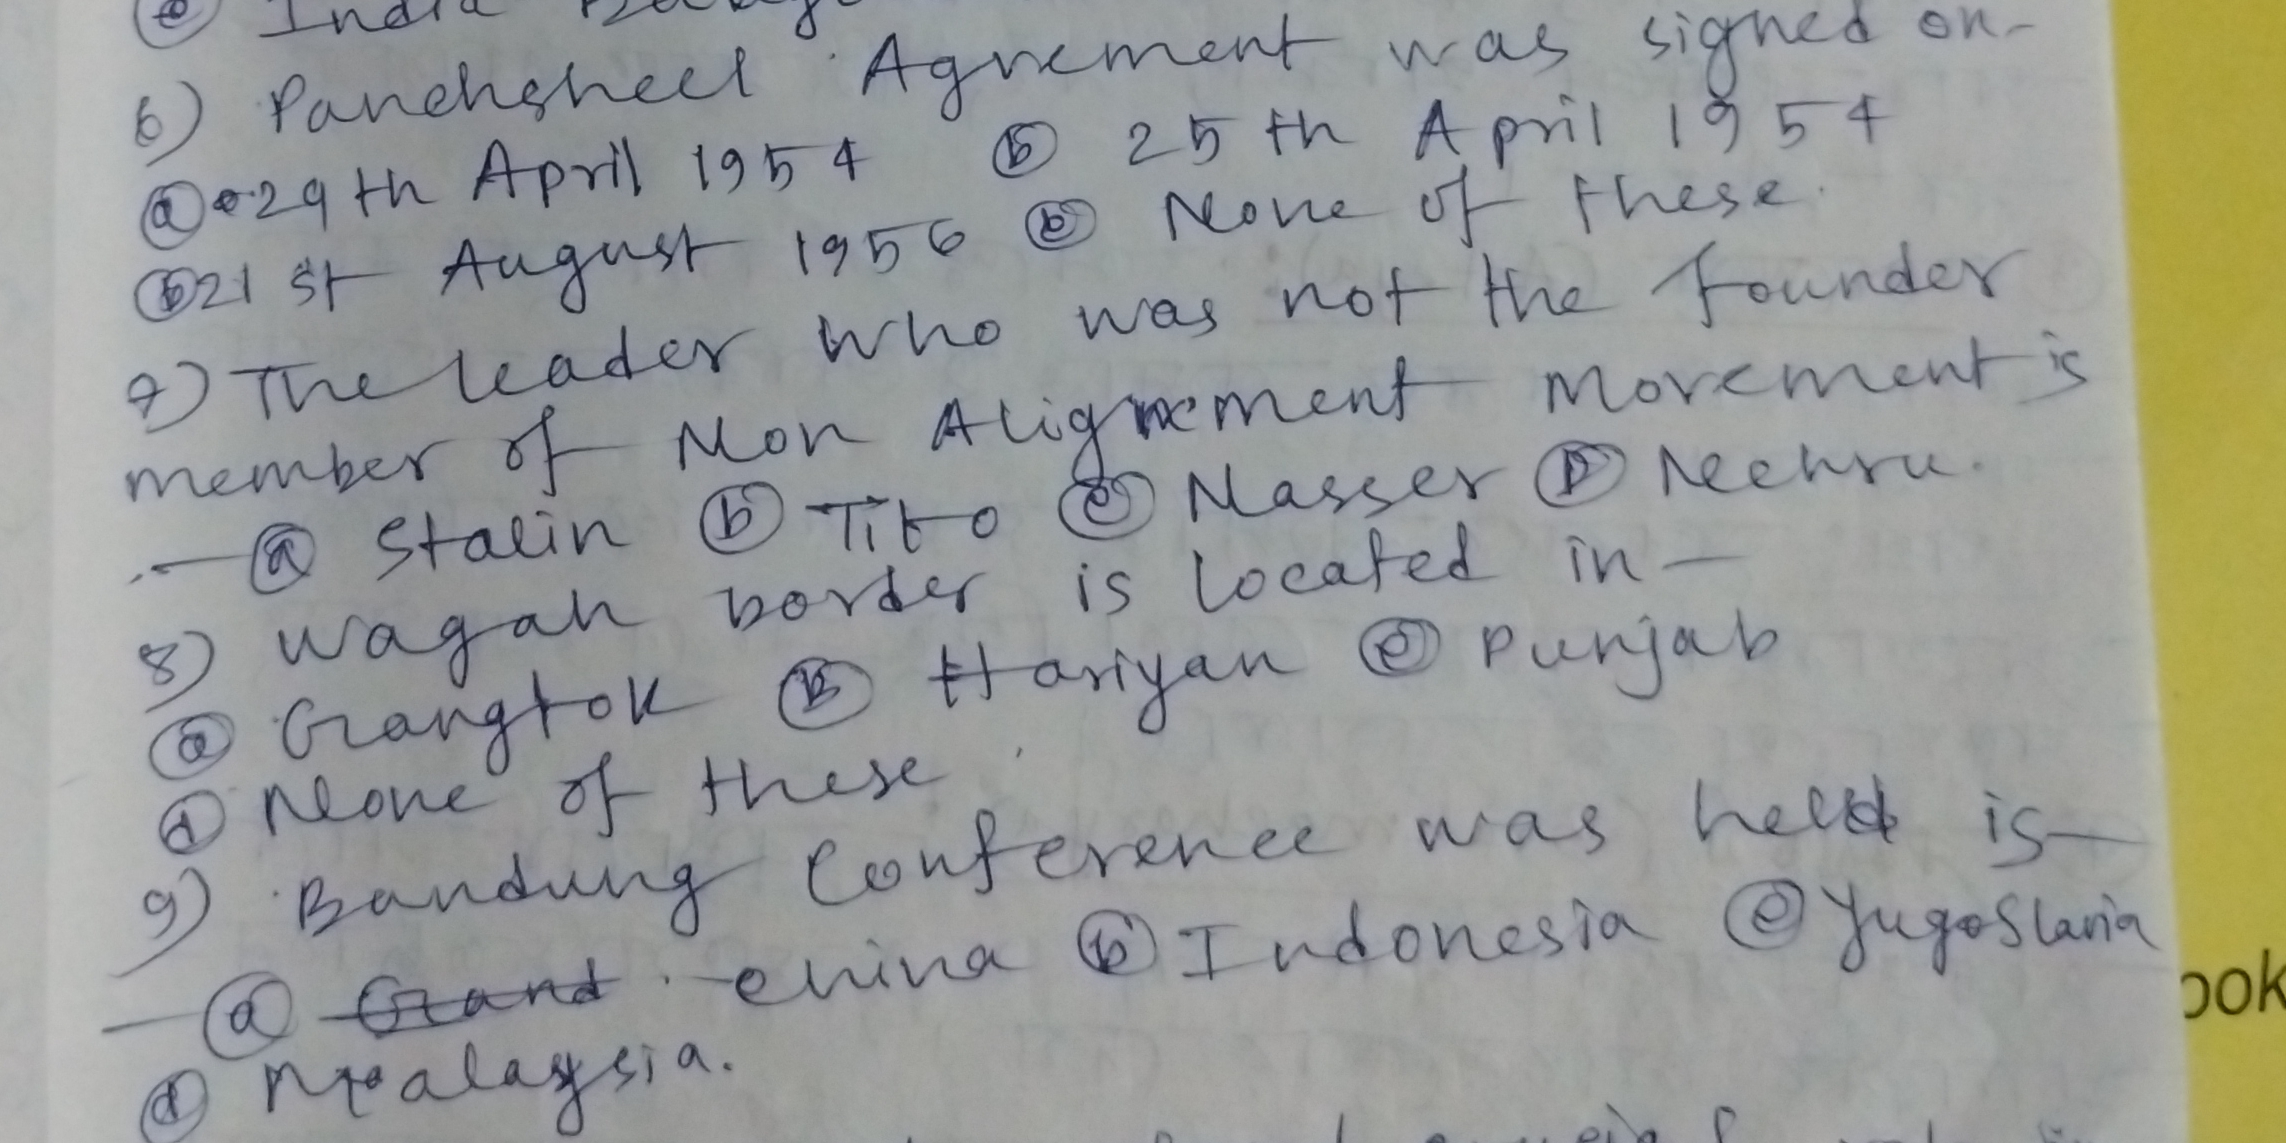 India
6) Panchsheel Agrement was signed on-
ⓐ 29th April 1954 ⓑ 25th April 1954
ⓑ 21st August 1956 ⓒ None of these.
7) The leader who was not the founder
member of Non Alignement Movement is
— ⓐ Stalin ⓑ Tito ⓒ Nasser Ⓓ Neehru.
8) Wagah border is located in —
ⓐ Gangtok Ⓑ Hariyan ⓒ Punjab
ⓓ None of these
9) Bandung Conference was held is —
— ⓐ Grand China ⓑ Indonesia ⓒ Yugoslavia
ⓓ Malaysia.
ook